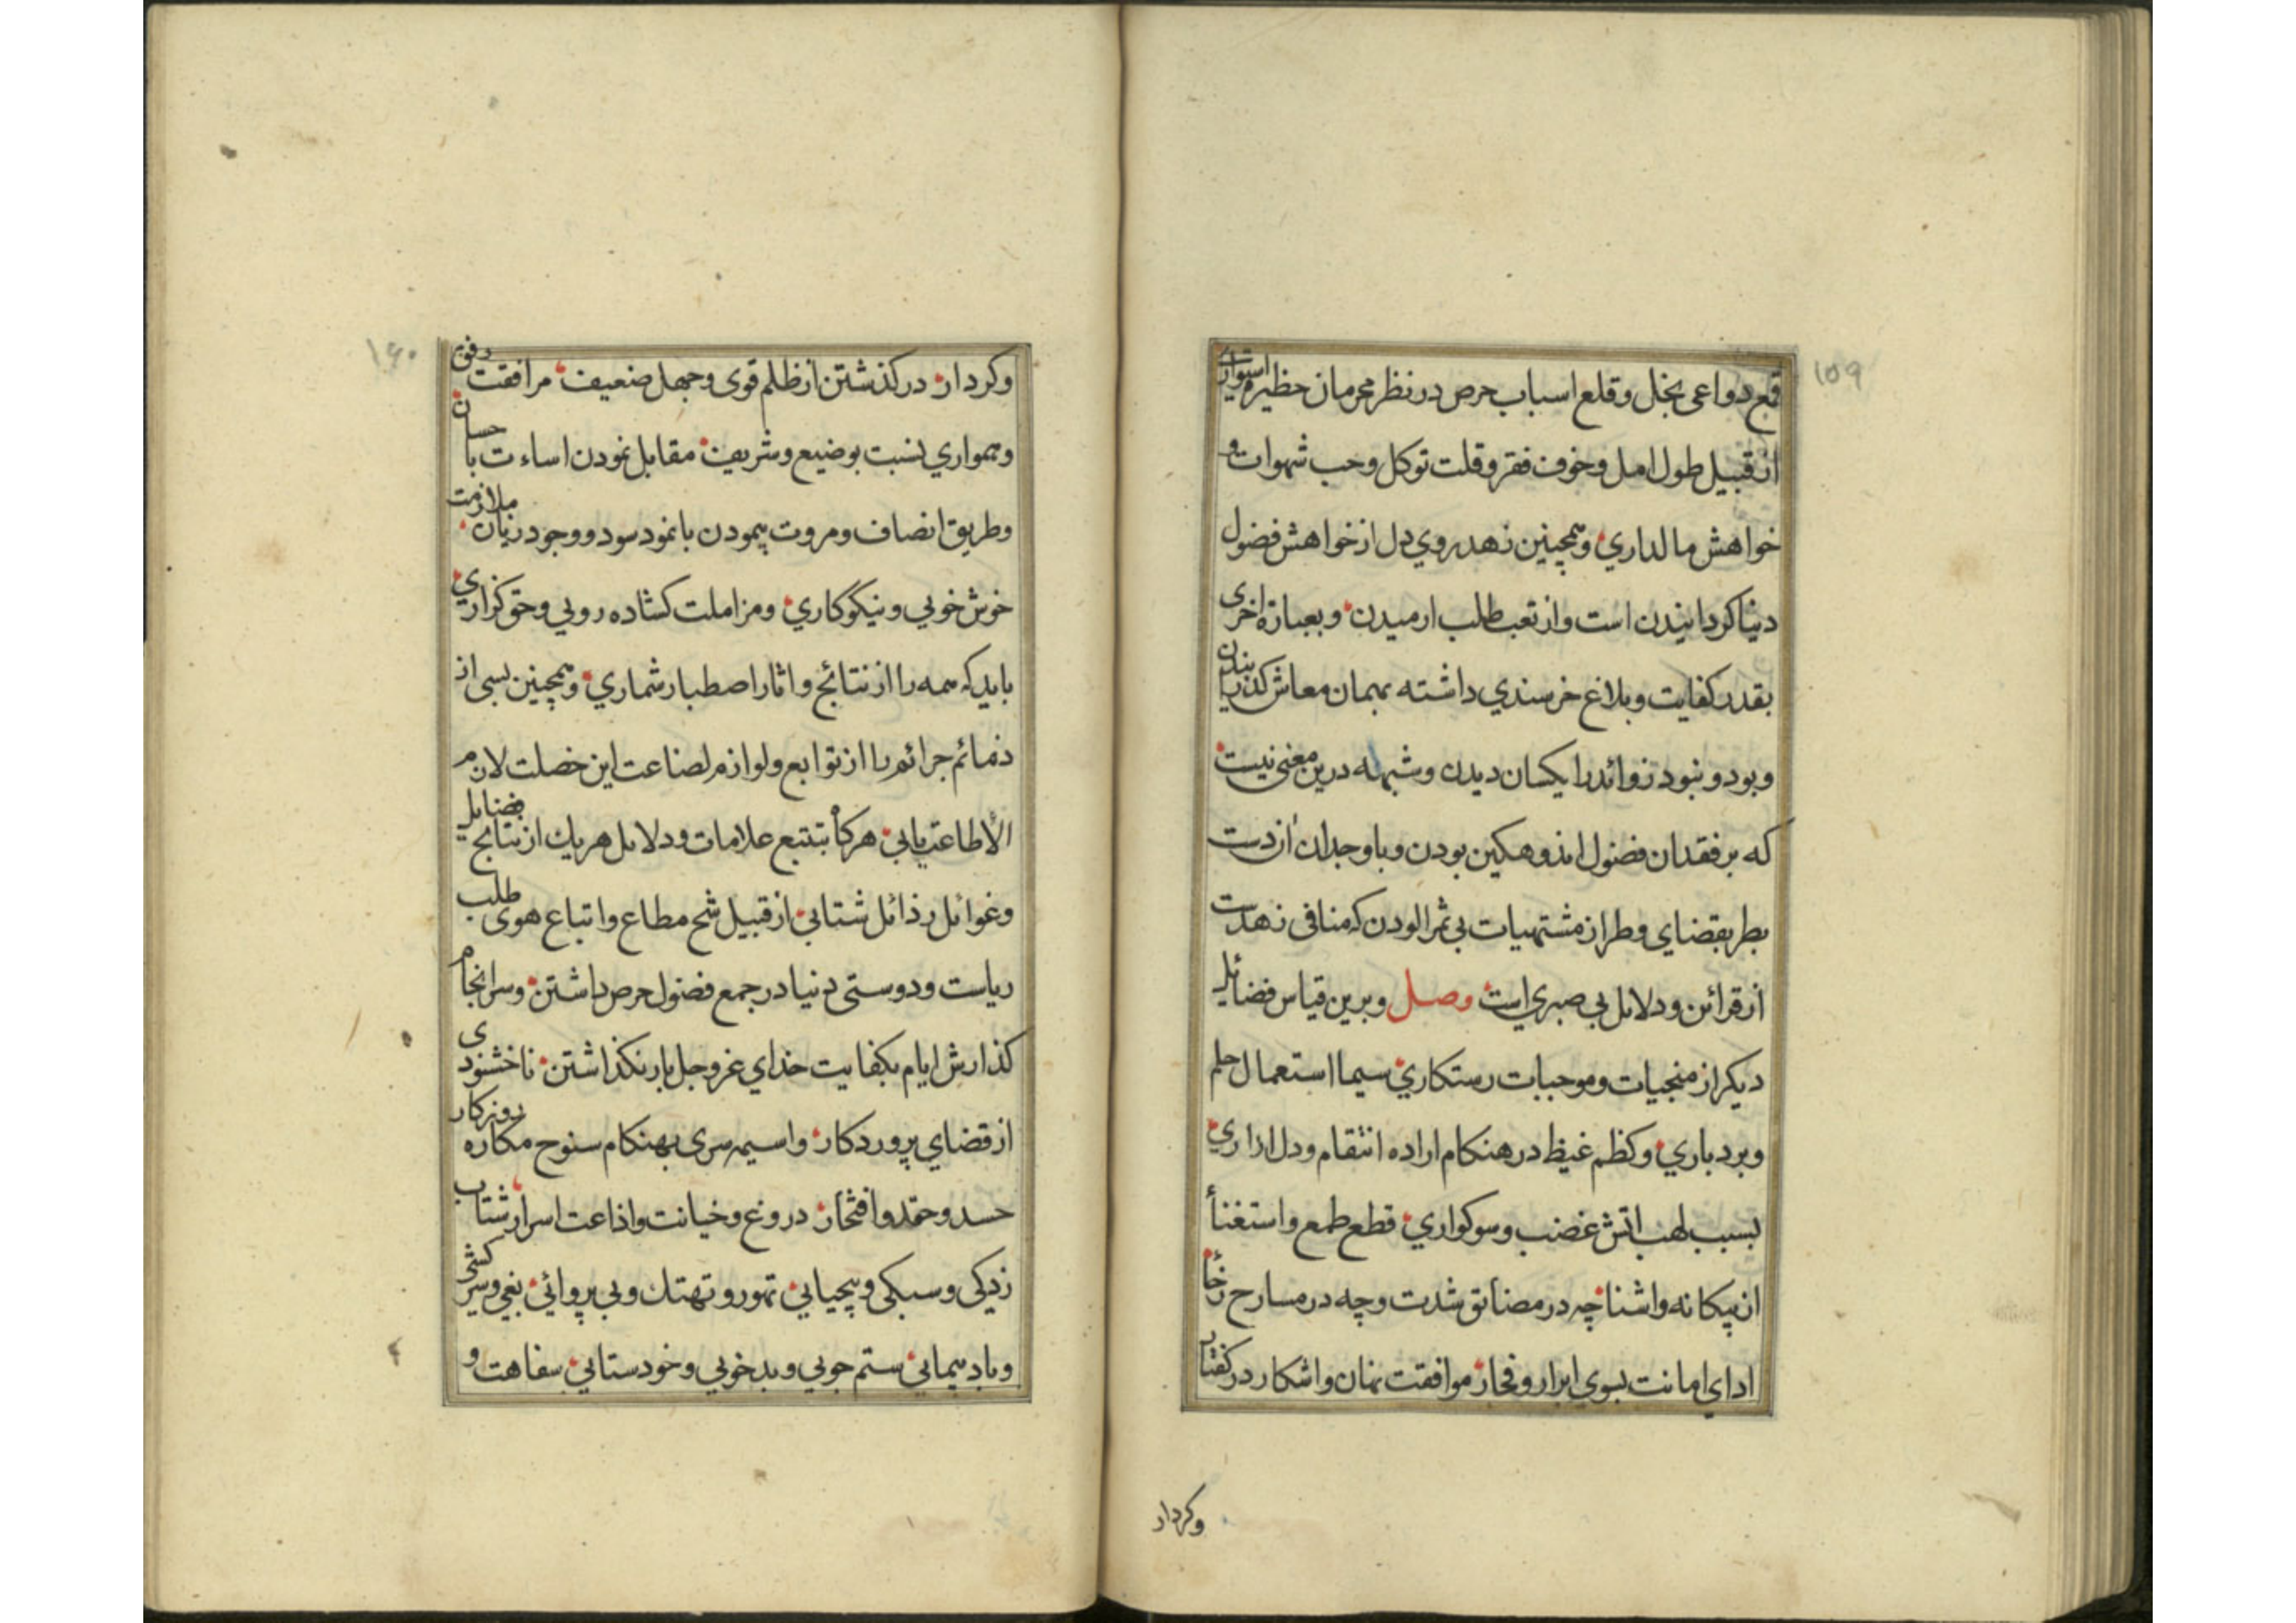 ۱۵۹
قمع دواعی بخل و قلع اسباب حرص در نظر محرمان حظیره
از قبیل طول امل و خوف فقر و قلت توکل و حب شهوات و
خواهش مالداري و همچنین زهد روي دل از خواهش فضول
دنیا کردانیدن است و از تعب طلب ارمیدن و بعبارة اخری
بقدر کفایت و بلاغ خرسندي داشته بهمان معاش کذرانیدن
و بود و نبود زوائد را یکسان دیدن و شبهه درین معنی نیست
که بر فقدان فضول اندوهکین بودن و با وجدان از دست
بطر بقضاي وطر از مشتهیات بی ثمر الودن که منافی زهدست
از قرائن و دلایل بی صبري است وصل و برین قیاس فضائل
دیکر از منجیات و موجبات رستکاري سیما استعمال حلم
و بردباري و کظم غیظ در هنکام اراده انتقام و دل ازاري
بسبب لهب اتش غضب و سوکواري قطع طمع و استغنأ
از بیکانه و اشنا چه در مضائق شدت و چه در مسارح رخأ
اداي امانت بسوي ابرار و فجار موافقت نهان و اشکار در کفتار
وکردار
۱۶۰
و کردار در کذشتن از ظلم قوی و جهل ضعیف مرافقت
و همواري نسبت بوضیع و شریف مقابل نمودن اساءت باحسان
و طریق انصاف و مروت پیمودن با نمود سود و وجود زیان ملازمت
خوش خویي و نیکوکاري و مزاملت کشاده رویي و حق کزاري
باید که همه را از نتائج و اثار اصطبار شماري و همچنین بسی از
ذمائم جرائم را از توابع و لوازم لصناعت این خصلت لازم
الأطاعت یابي هرکاه بتتبع علامات و دلایل هر یك از نتایج فضایل
و غوائل رذائل شتابي از قبیل شح مطاع و اتباع هوی طلب
ریاست و دوستی دنیا در جمع فضول حرص داشتن و سرانجام
کذارش ایام بکفایت خداي عز و جل باز نکذاشتن ناخشنودی
از قضاي پروردکار و اسیمه سری بهنکام سنوح مکاره روزکار
حسد و حقد و افتخار دروغ و خیانت و اذاعت اسرار شتاب
زدکی و سبکی و بیحیایي تهور و تهتك و بی پروائي بغی و سرکشی
و باد پیمایي ستم جویي و بدخویي و خودستایي سفاهت و